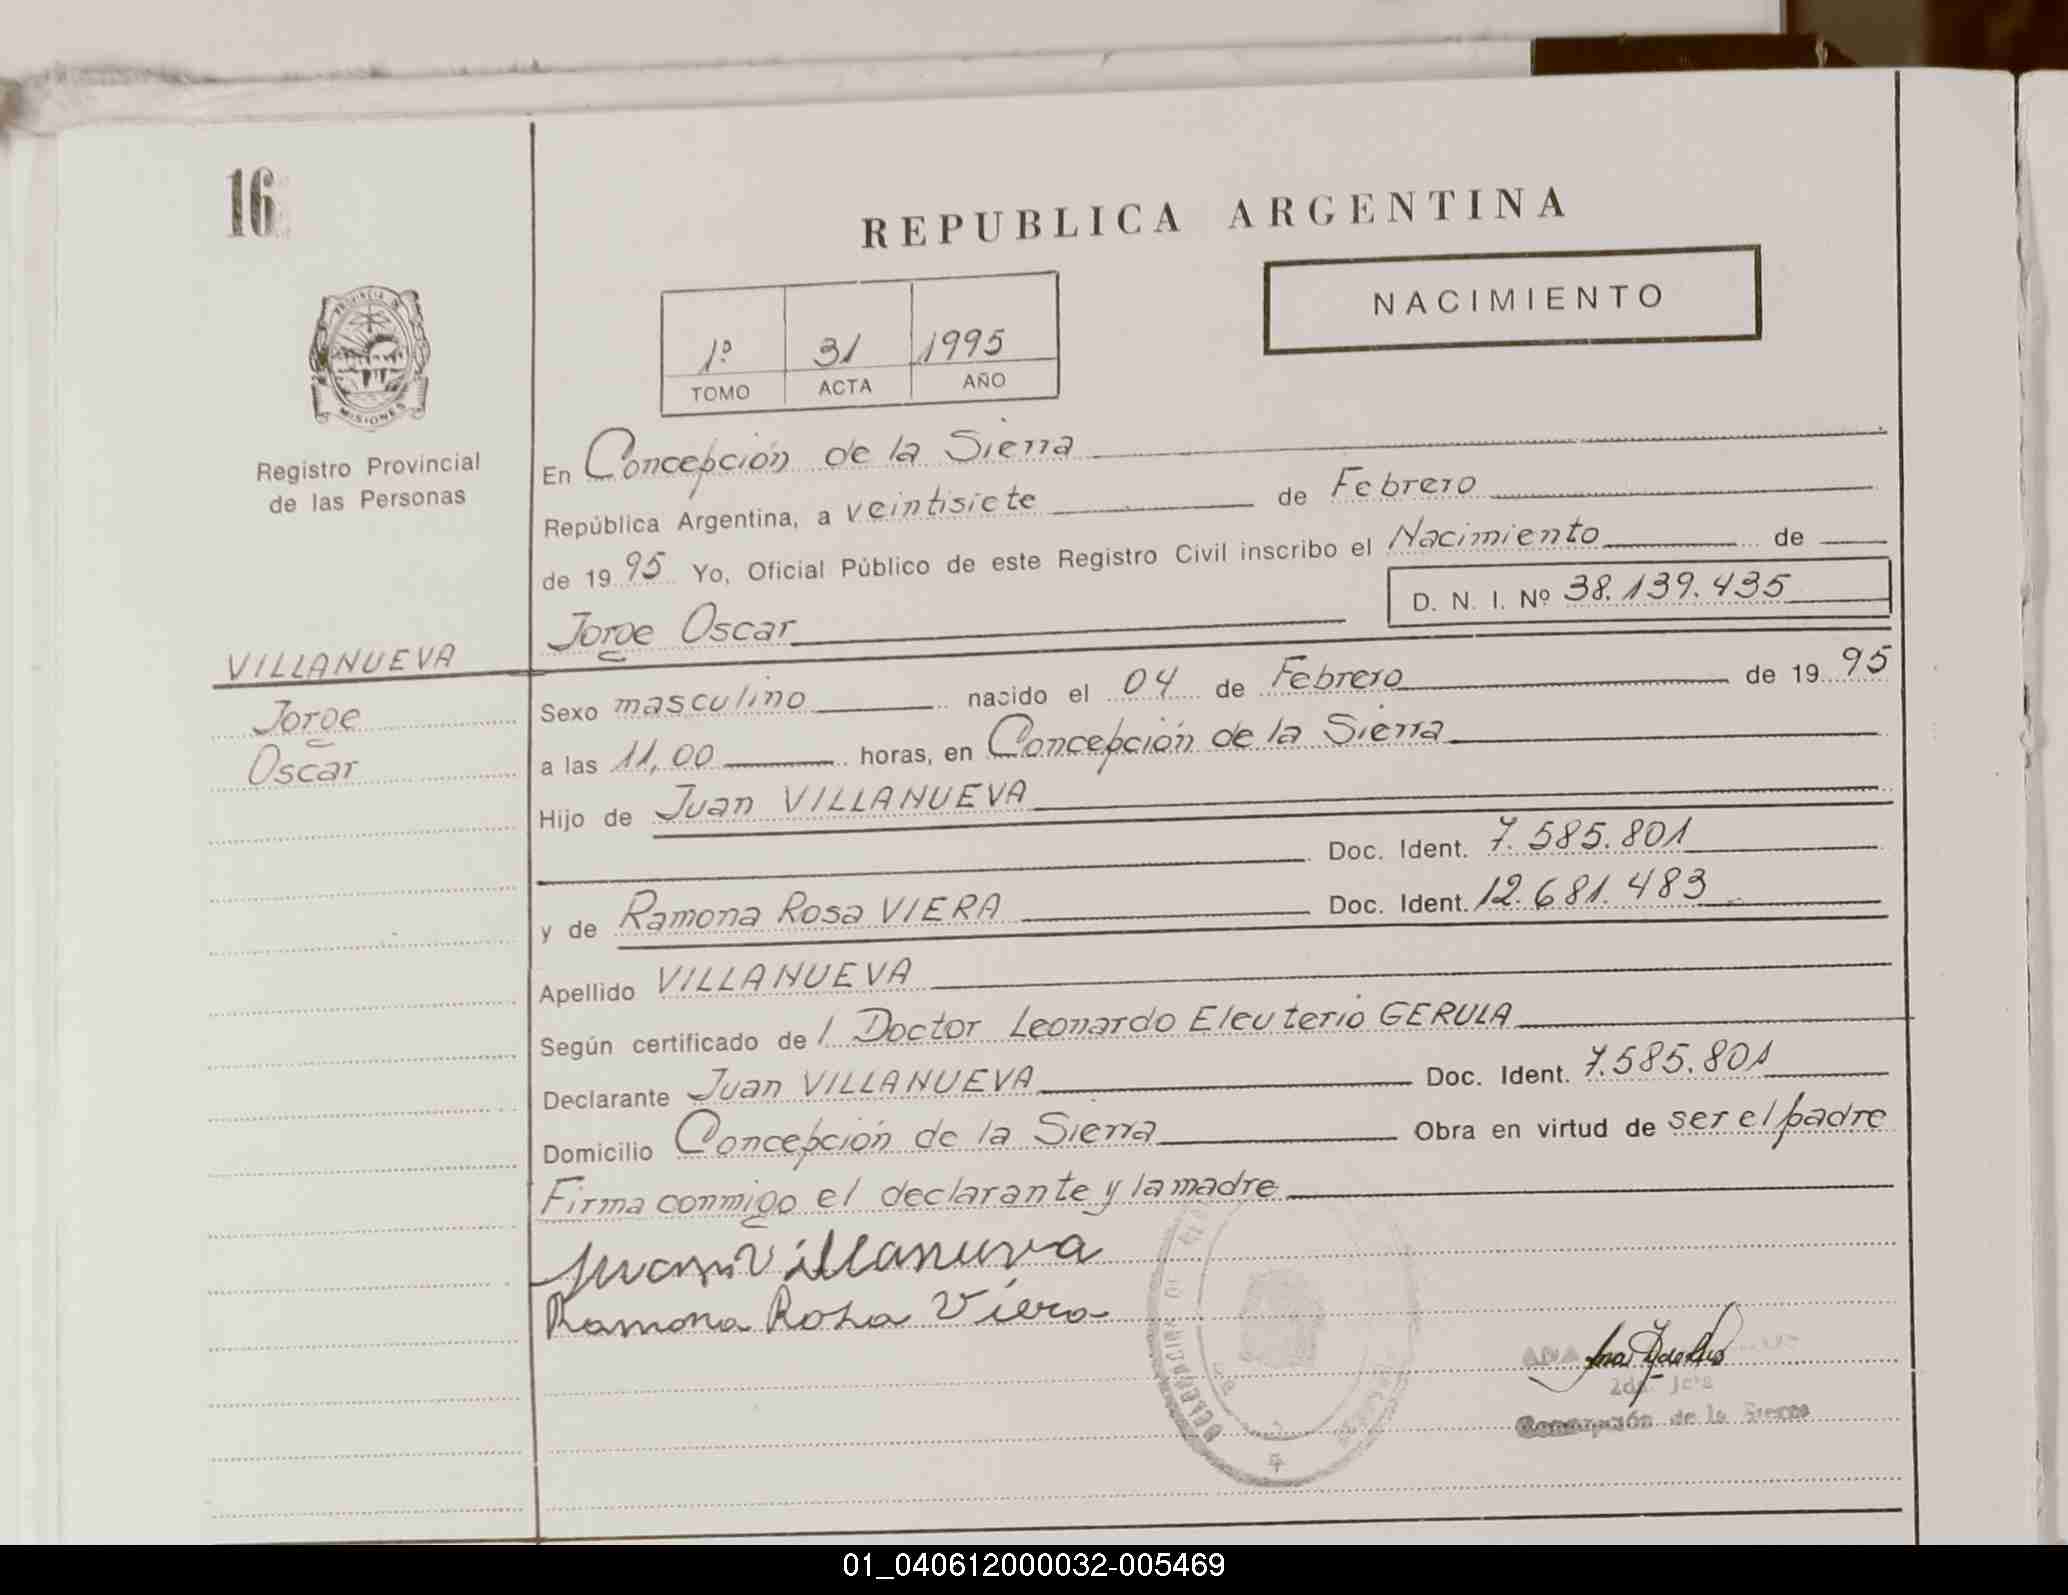 16
REPUBLICA ARGENTINA
NACIMIENTO
1º 31 1995
TOMO ACTA AÑO
PROVINCIA DE
MISIONES
Registro Provincial
de las Personas
En Concepción de la Sierra
República Argentina, a veintisiete de Febrero
de 19 95 Yo, Oficial Público de este Registro Civil inscribo el Nacimiento de
D. N. I. Nº 38.139.435
Jorge Oscar
VILLANUEVA
Jorge
Oscar
Sexo masculino nacido el 04 de Febrero de 19 95
a las 11,00 horas, en Concepción de la Sierra
Hijo de Juan VILLANUEVA
Doc. Ident. 7.585.801
y de Ramona Rosa VIERA Doc. Ident. 12.681.483
Apellido VILLANUEVA
Según certificado de l Doctor Leonardo Eleuterio GERULA
Declarante Juan VILLANUEVA Doc. Ident. 7.585.801
Domicilio Concepción de la Sierra Obra en virtud de ser el padre
Firma conmigo el declarante y la madre
Juan Villanueva
Ramona Rosa Viera
ANA
2da. Jefe
Concepción de la Sierra
DELEGACION DE
01_040612000032-005469